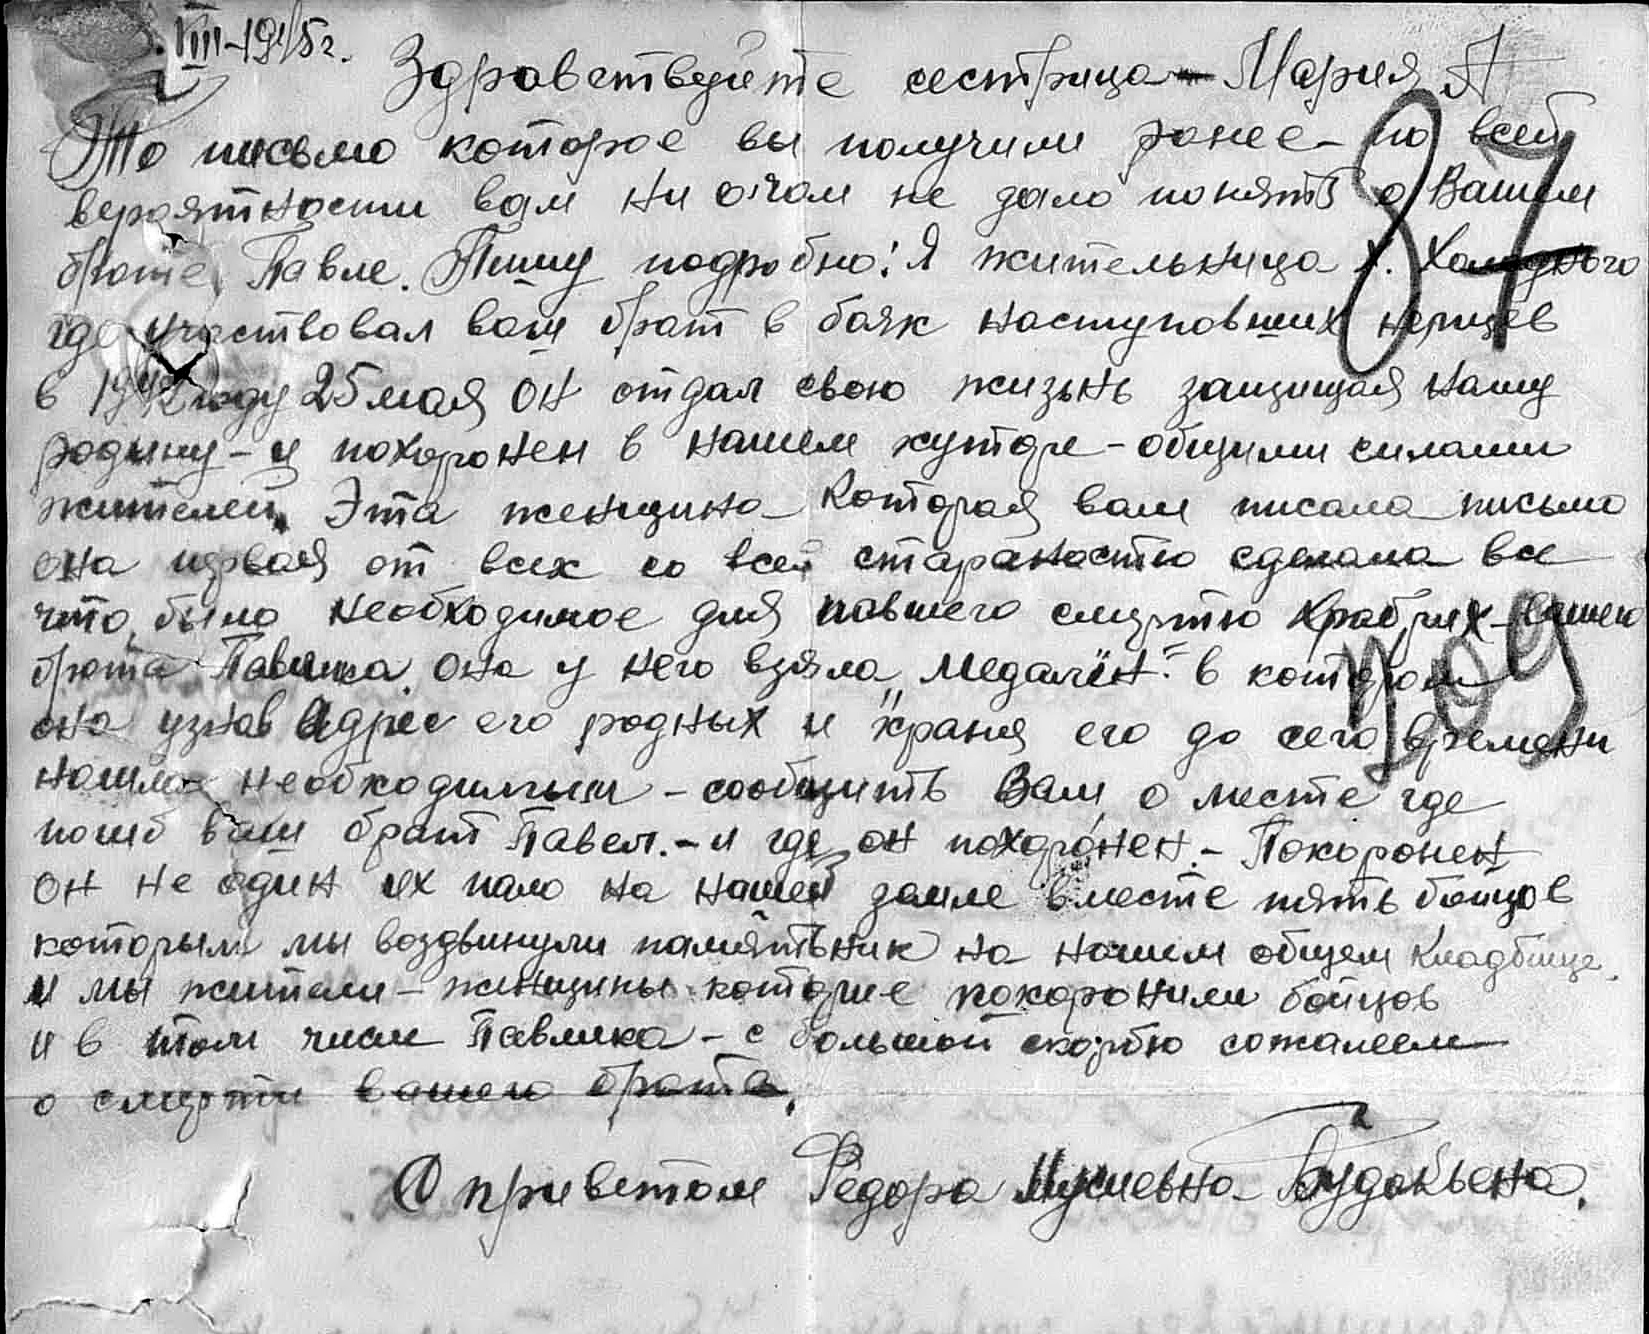 VIII-1945г.
Здравствуйте сестрица Мария А
То письмо которое вы получили ранее - по всей
вероятности вам ни о чом не дало понять о Вашем
брате Павле. Пишу подробно! Я жительница х. Холодного
где участвовал ваш брат в боях наступовших немцев
в 1942 году 25 мая он отдал свою жизнь защищая нашу
родину - и похоронен в нашем хуторе - общими силами
жителей. Эта женщина которая вам писала письмо
она первая от всех со всей стараностю сделала все
что было необходимое для павшего смертю храбрих - вашего
брата Павлика. Она у него взяла "медалён" в котором
она узнав адрес его родных и храня его до сего времени
нашла необходимым - сообщить Вам о месте где
погиб ваш брат Павел. - и где он похоронен. - Похоронен
он не один их пало на нашей земле вместе пять бойцов
которым мы воздвинули памятьник на нашем общем кладбище.
и мы жители - женщины которие похоронили бойцов
и в том числе Павлика - с большой скорбю сожалеем
о смерти вашего брата.
С приветом Федора
87
109